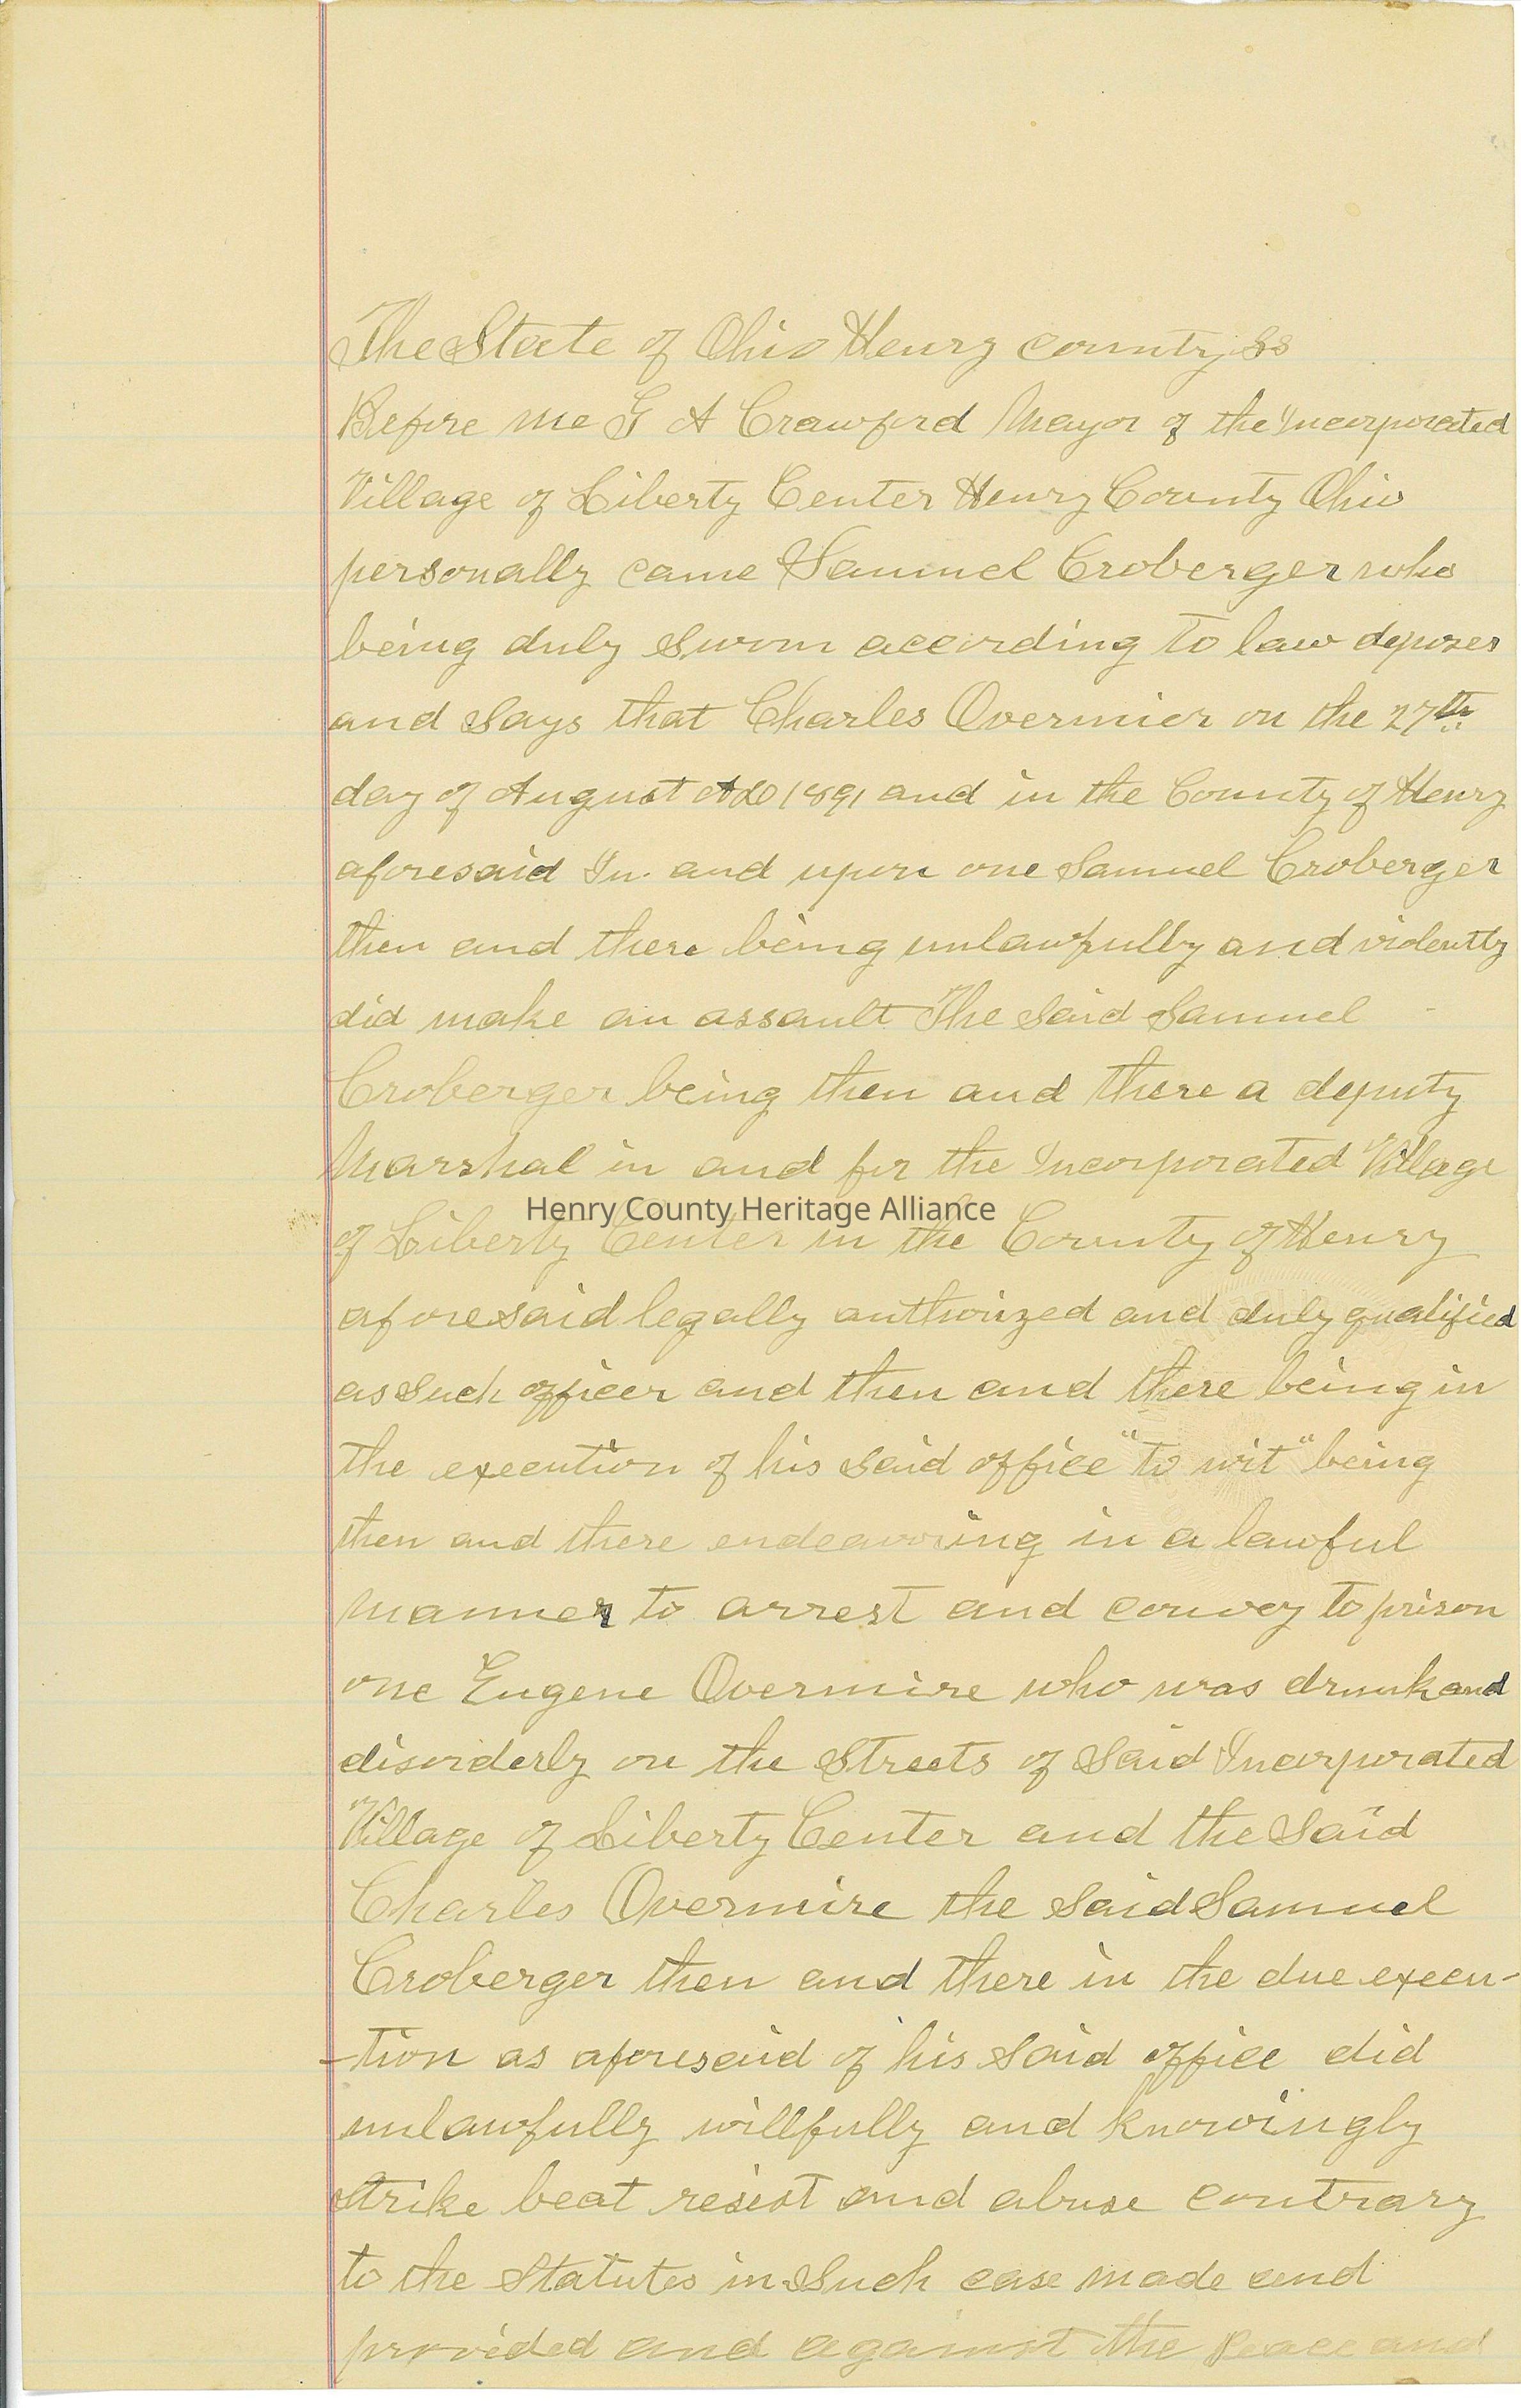 The State of Ohio Henry County SS
Before me G A Crawford Mayor of the Incorporated
Village of Liberty Center Henry County Ohio
personally came Samuel Croberger who
being duly sworn according to law deposes
and says that Charles Overmier on the 27th
day of August AD 1891 and in the County of Henry
aforesaid In and upon one Samuel Croberger
then and there being unlawfully and violently
did make an assault The Said Samuel
Croberger being then and there a deputy
Marshal in and for the Incorporated Village
Henry County Heritage Alliance
of Liberty Center in the County of Henry
aforesaid legally authorized and duly qualified
as Such officer and then and there being in
the execution of his said office "to wit" being
then and there endeavoring in a lawful
manner to arrest and convey to prison
one Eugene Overmire who was drunk and
disorderly on the Streets of Said Incorporated
Village of Liberty Center and the Said
Charles Overmire the Said Samuel
Croberger then and there in the due execu-
-tion as aforesaid of his Said office did
unlawfully willfully and knowingly
strike beat resist and abuse contrary
to the Statutes in Such case made and
provided and against the Peace and